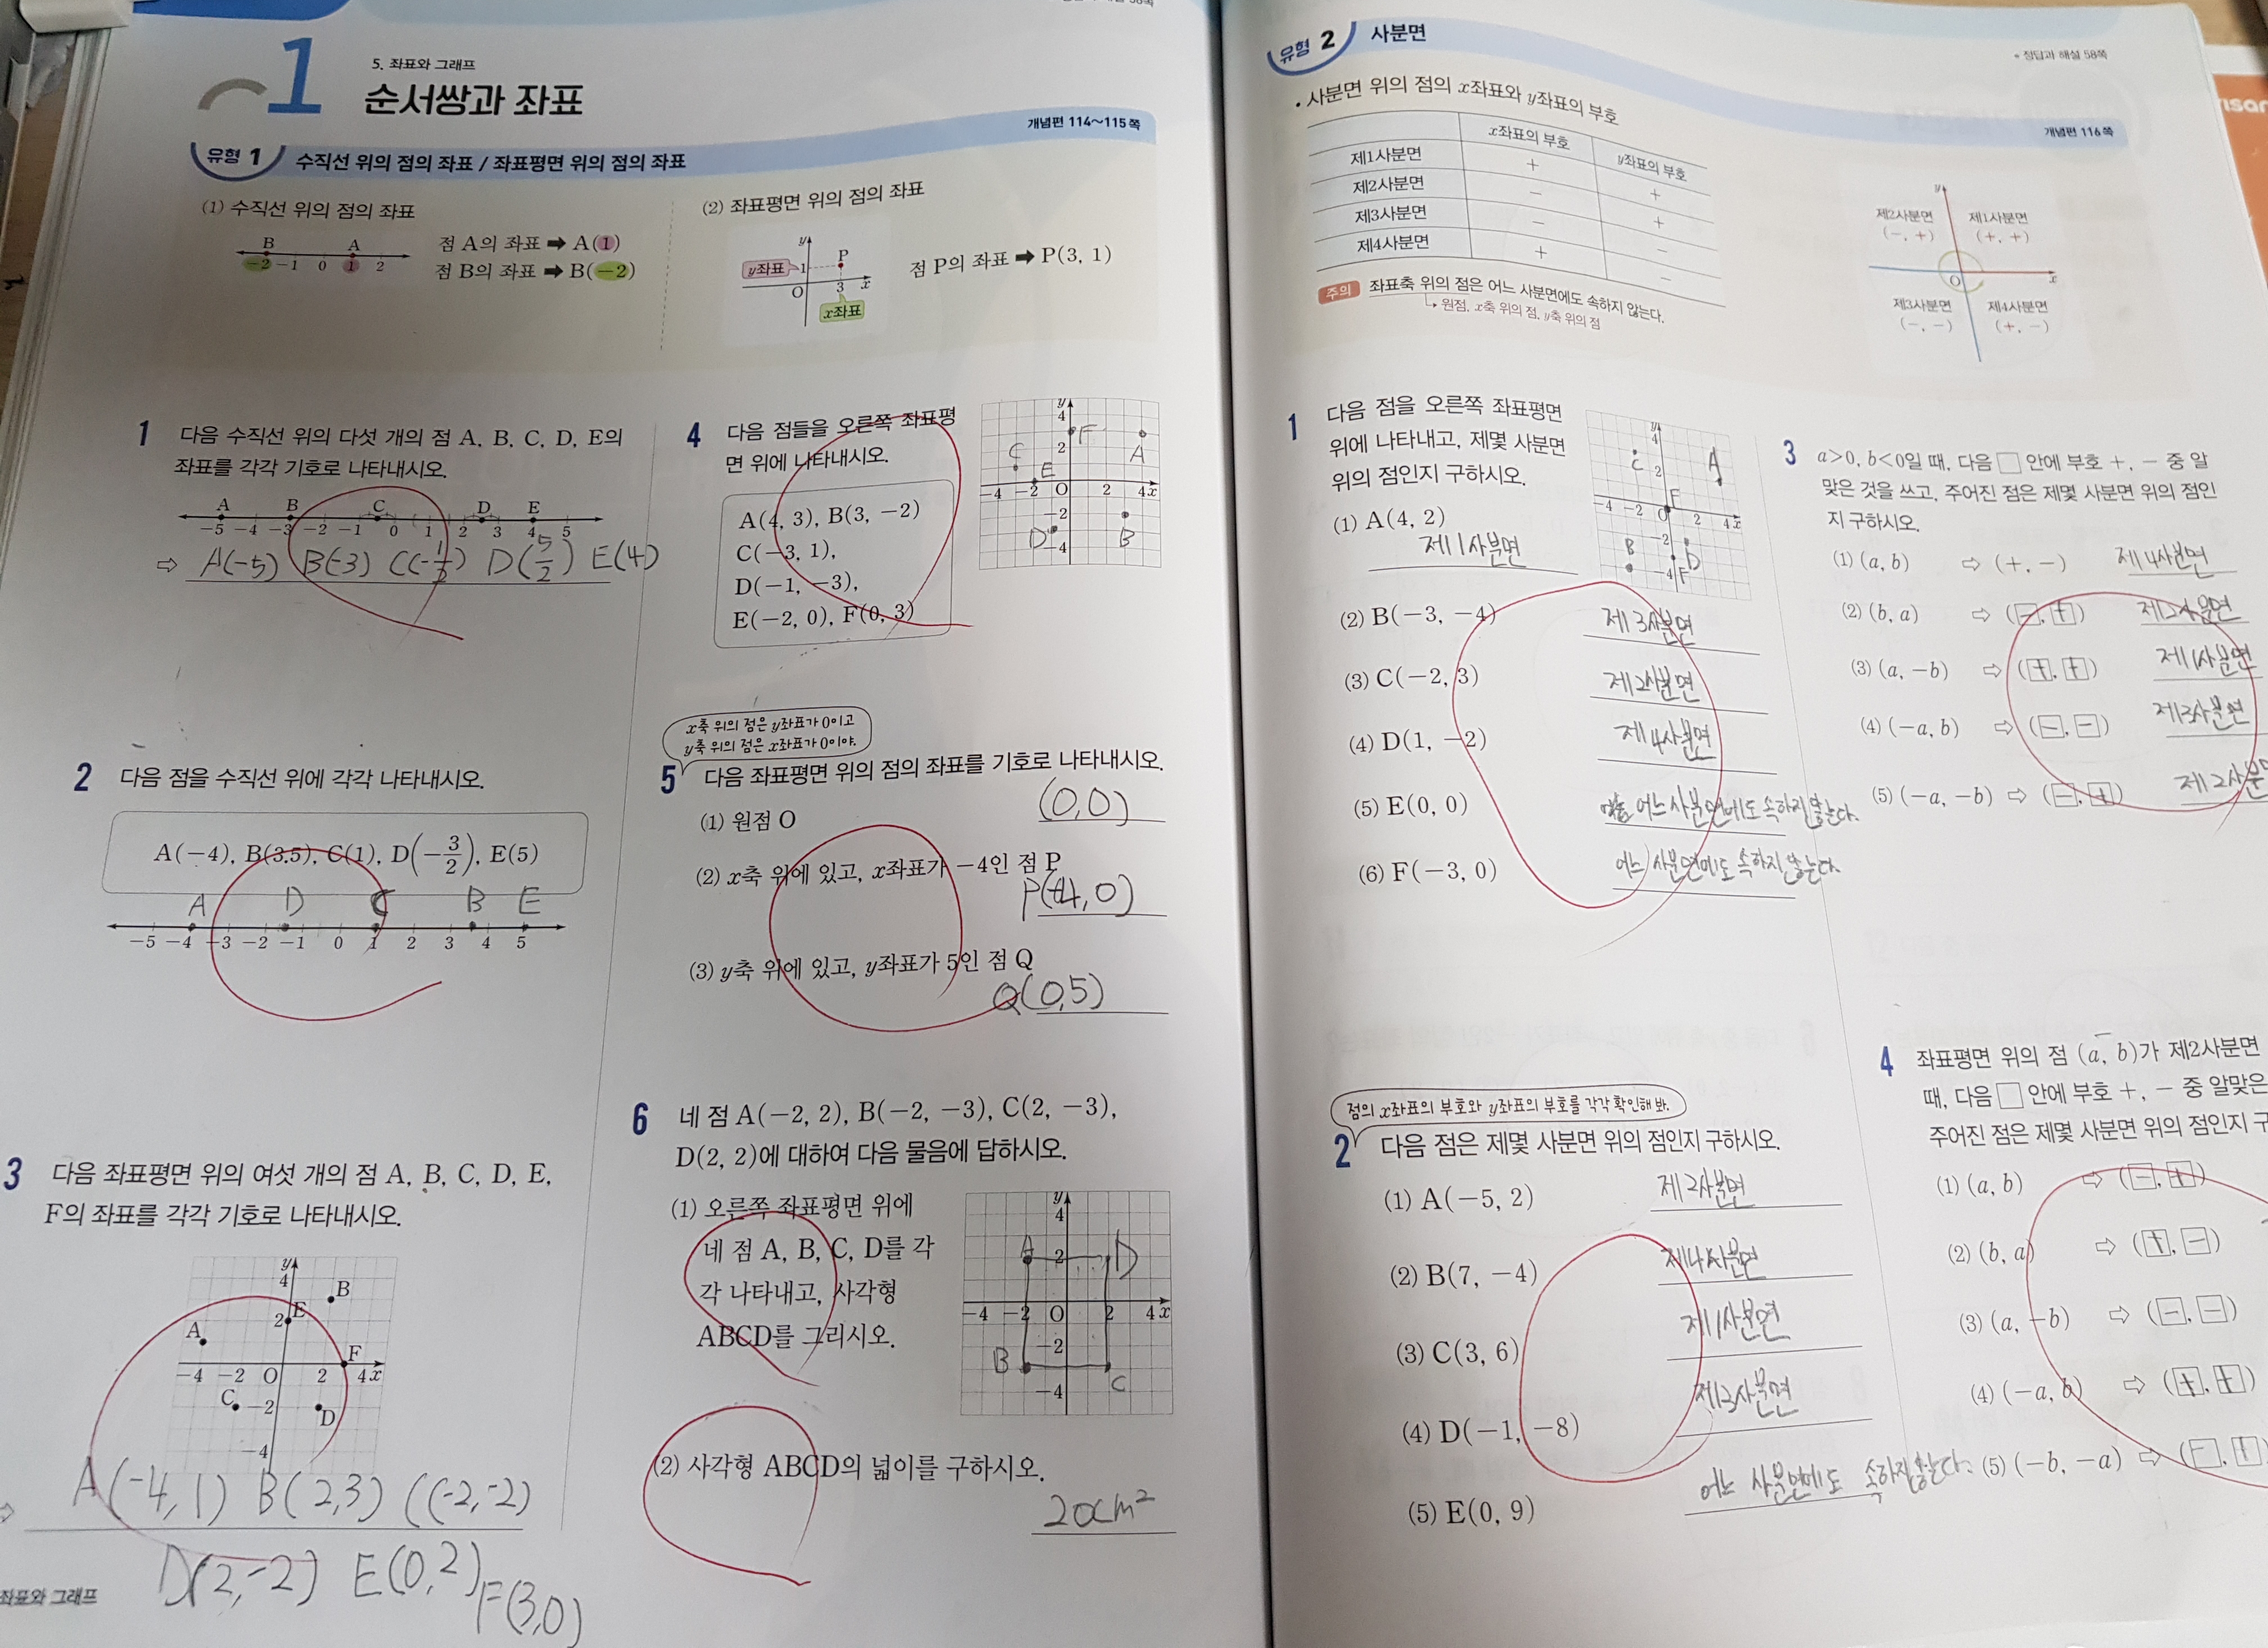 1
5. 좌표와 그래프
순서쌍과 좌표
개념편 114~115쪽
유형 1 수직선 위의 점의 좌표 / 좌표평면 위의 점의 좌표
(1) 수직선 위의 점의 좌표
B A
-2 -1 0 1 2
점 A의 좌표 ➡ A(1)
점 B의 좌표 ➡ B(-2)
(2) 좌표평면 위의 점의 좌표
y
y좌표 1 P
O 3 x
x좌표
점 P의 좌표 ➡ P(3, 1)
1 다음 수직선 위의 다섯 개의 점 A, B, C, D, E의
좌표를 각각 기호로 나타내시오.
A B C D E
-5 -4 -3 -2 -1 0 1 2 3 4 5
⇨ A(-5) B(-3) C(-1/2) D(5/2) E(4)
2 다음 점을 수직선 위에 각각 나타내시오.
A(-4), B(3.5), C(1), D(-3/2), E(5)
A D C B E
-5 -4 -3 -2 -1 0 1 2 3 4 5
3 다음 좌표평면 위의 여섯 개의 점 A, B, C, D, E,
F의 좌표를 각각 기호로 나타내시오.
y
4 B
2 E
A
F
-4 -2 O 2 4 x
C -2 D
-4
⇨ A(-4, 1) B(2,3) C(-2,-2)
D(2,-2) E(0,2) F(3,0)
좌표와 그래프
4 다음 점들을 오른쪽 좌표평
면 위에 나타내시오.
A(4, 3), B(3, -2)
C(-3, 1),
D(-1, -3),
E(-2, 0), F(0, 3)
y
4
F
C 2 A
E
-4 -2 O 2 4 x
-2
D B
-4
x축 위의 점은 y좌표가 0이고
y축 위의 점은 x좌표가 0이야.
5 다음 좌표평면 위의 점의 좌표를 기호로 나타내시오.
(1) 원점 O
(0,0)
(2) x축 위에 있고, x좌표가 -4인 점 P
P(-4,0)
(3) y축 위에 있고, y좌표가 5인 점 Q
Q(0,5)
6 네 점 A(-2, 2), B(-2, -3), C(2, -3),
D(2, 2)에 대하여 다음 물음에 답하시오.
(1) 오른쪽 좌표평면 위에
네 점 A, B, C, D를 각
각 나타내고, 사각형
ABCD를 그리시오.
y
4
A 2 D
-4 -2 O 2 4 x
-2
B C
-4
(2) 사각형 ABCD의 넓이를 구하시오.
20cm²
유형 2 사분면
정답과 해설 58쪽
개념편 116쪽
• 사분면 위의 점의 x좌표와 y좌표의 부호
x좌표의 부호 y좌표의 부호
제1사분면 + +
제2사분면 - +
제3사분면 - -
제4사분면 + -
주의 좌표축 위의 점은 어느 사분면에도 속하지 않는다.
원점, x축 위의 점, y축 위의 점
y
제2사분면 제1사분면
(-, +) (+, +)
O x
제3사분면 제4사분면
(-, -) (+, -)
1 다음 점을 오른쪽 좌표평면
위에 나타내고, 제몇 사분면
위의 점인지 구하시오.
y
4
C 2 A
E
-4 -2 O 2 4 x
-2
B D
-4 F
(1) A(4, 2)
제1사분면
(2) B(-3, -4) 제3사분면
(3) C(-2, 3) 제2사분면
(4) D(1, -2) 제4사분면
(5) E(0, 0) 어느 사분면에도 속하지 않는다.
(6) F(-3, 0) 어느 사분면에도 속하지 않는다.
점의 x좌표의 부호와 y좌표의 부호를 각각 확인해 봐.
2 다음 점은 제몇 사분면 위의 점인지 구하시오.
(1) A(-5, 2) 제2사분면
(2) B(7, -4) 제4사분면
(3) C(3, 6) 제1사분면
(4) D(-1, -8) 제3사분면
(5) E(0, 9) 어느 사분면에도 속하지 않는다.
3 a>0, b<0일 때, 다음 □ 안에 부호 +, - 중 알
맞은 것을 쓰고, 주어진 점은 제몇 사분면 위의 점인
지 구하시오.
(1) (a, b) ⇨ (+, -) 제4사분면
(2) (b, a) ⇨ (-, +) 제2사분면
(3) (a, -b) ⇨ (+, +) 제1사분면
(4) (-a, b) ⇨ (-, -) 제3사분면
(5) (-a, -b) ⇨ (-, +) 제2사분
4 좌표평면 위의 점 (a, b)가 제2사분면
때, 다음 □ 안에 부호 +, - 중 알맞은
주어진 점은 제몇 사분면 위의 점인지 구
(1) (a, b) ⇨ (-, +)
(2) (b, a) ⇨ (+, -)
(3) (a, -b) ⇨ (-, -)
(4) (-a, b) ⇨ (+, +)
(5) (-b, -a) ⇨ (-, +)